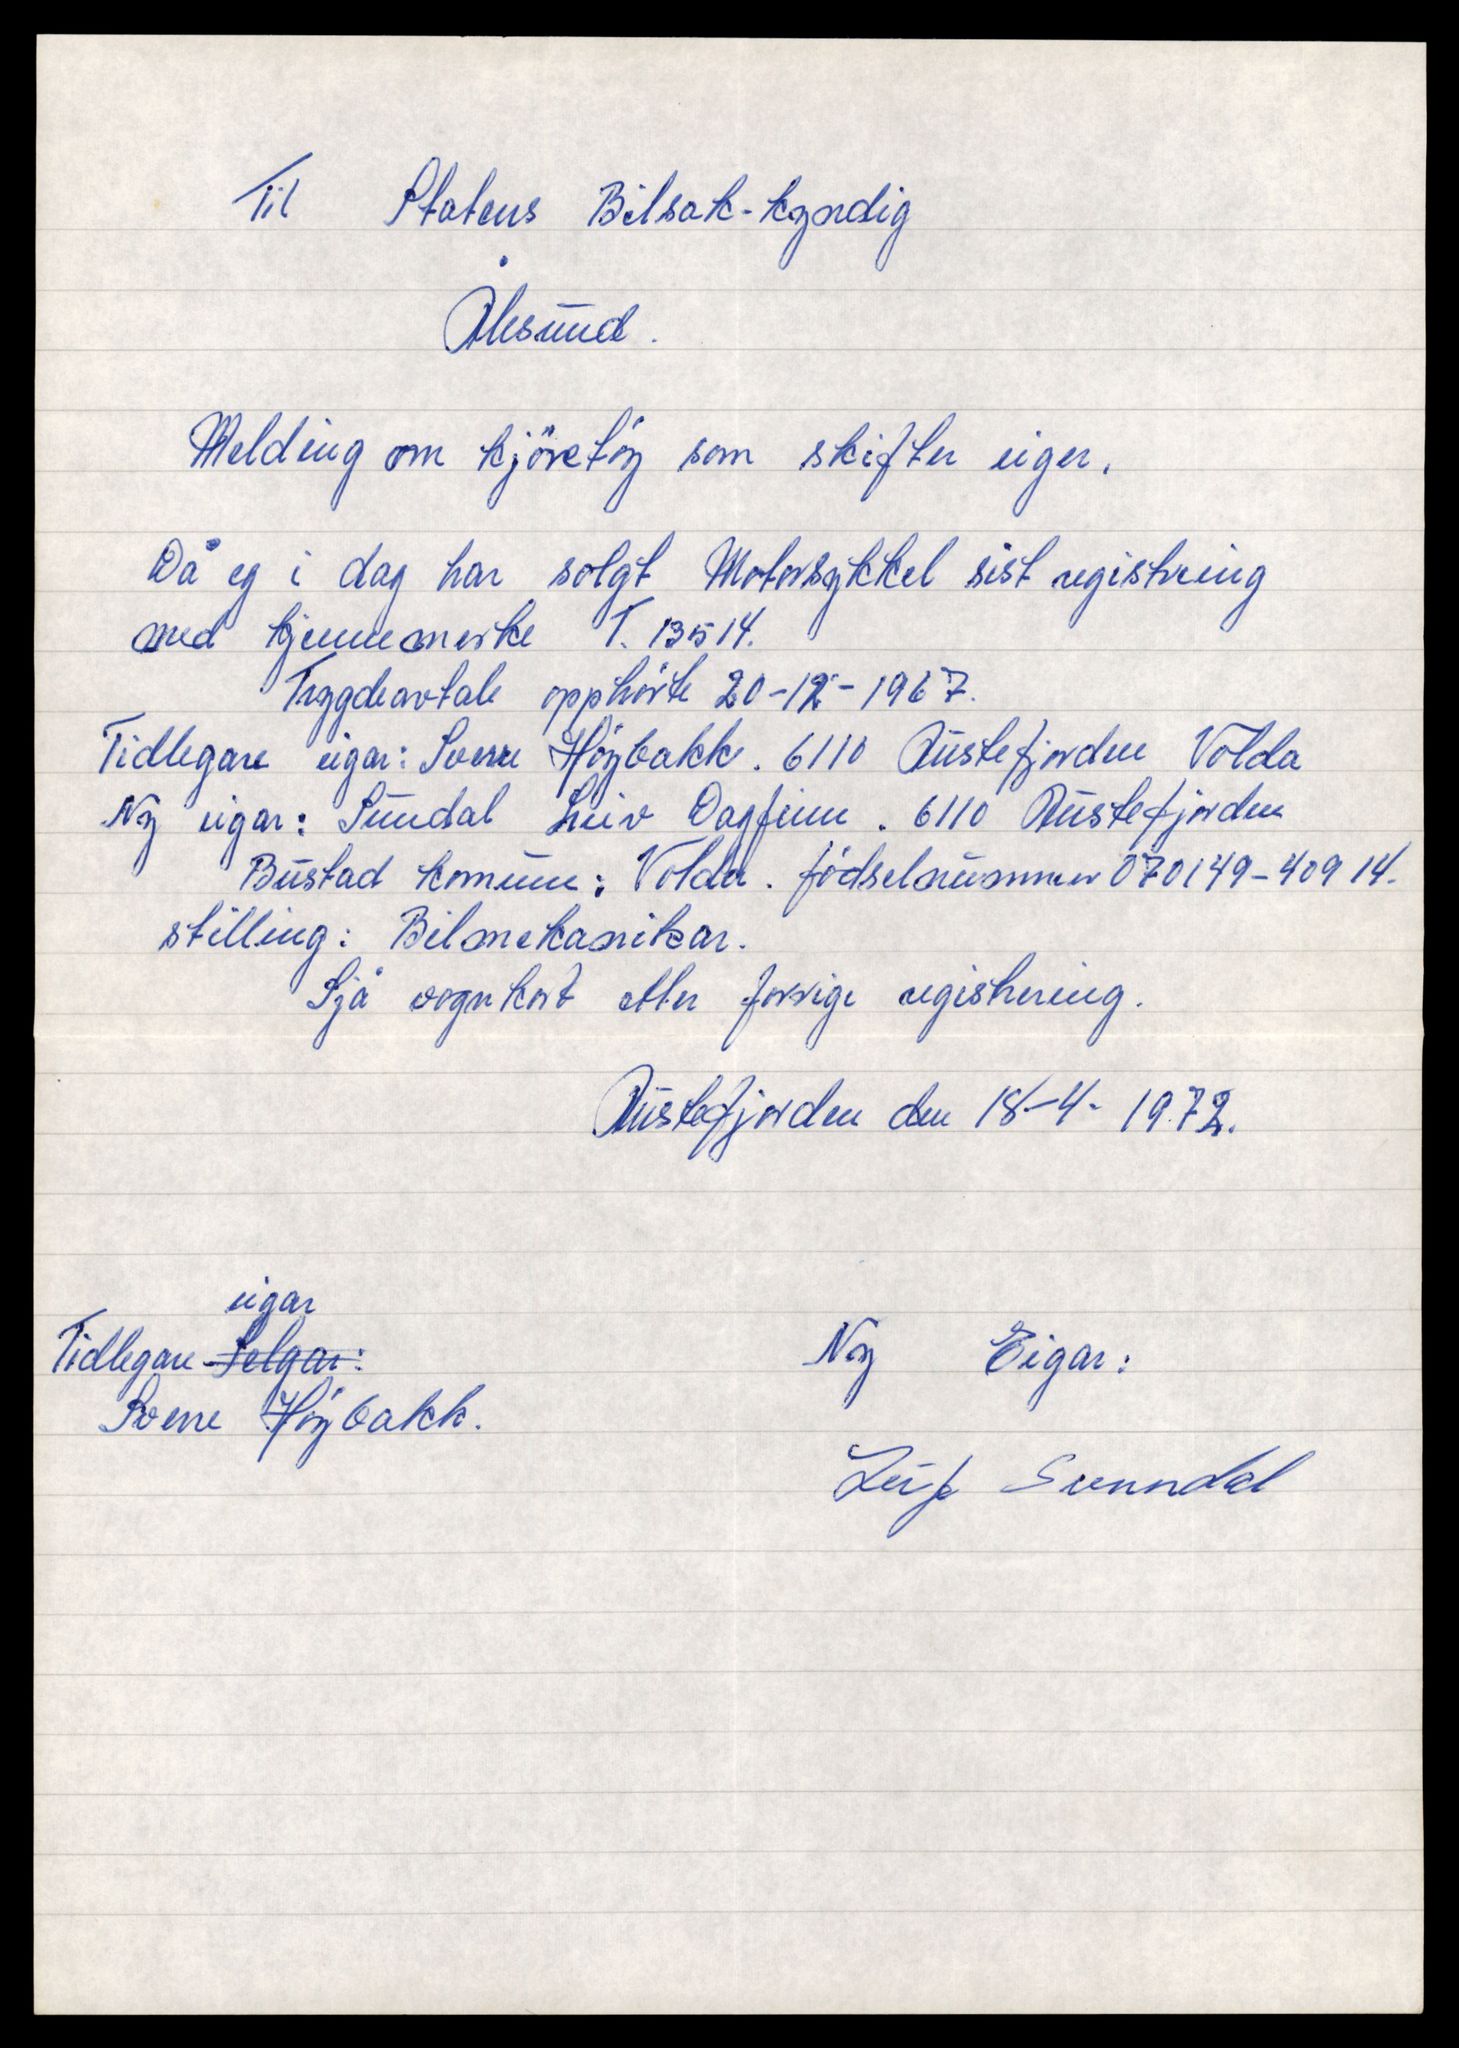 Til Statens Bilsak-kyndig
Ålesund.
Melding om kjöretöy som skifter eiger.
Då eg i dag har solgt Motorsykkel sist registreing
med kjennemerke T. 13514.
Trygdeavtale opphörte 20-12-1967.
Tidlegare eigar: Sverre Höybakk. 6110 Austefjorden Volda
Ny eigar: Sundal Leiv Dagfinn. 6110 Austefjorden
Bustad komune: Volda. födselnummer 070149-40914.
stilling: Bilmekanikar.
Sjå vognkort etter forrige registrering.
Austefjorden den 18-4-1972.
eigar
Tidlegare Selgar:
Sverre Höybakk.
Ny Eigar:
Leif Sunndal